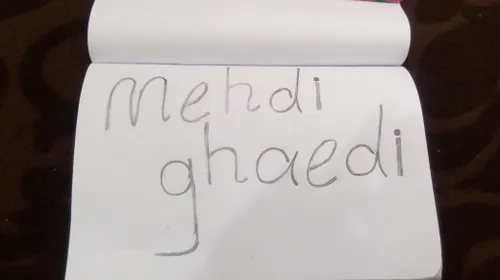 Mehdi
ghaedi